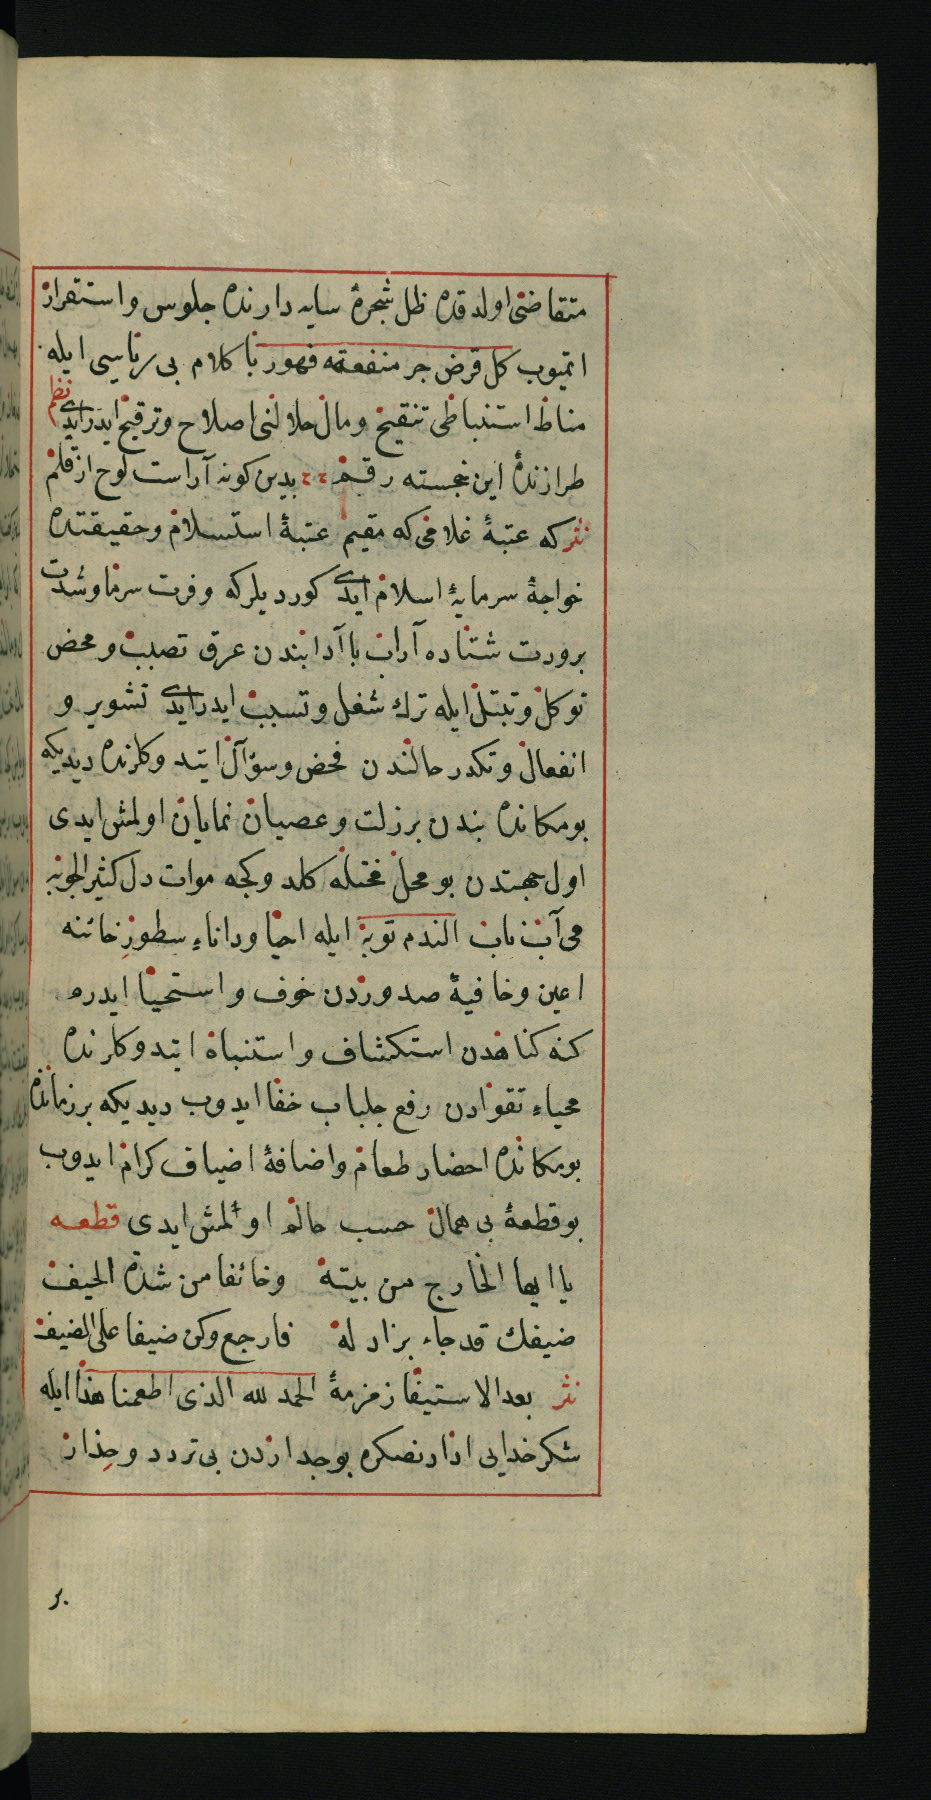 متقاضئ اولدقده ظل شجرۀ سایه دارنده جلوس واستقرار
اتمیوب كل قرض جر منفعة فهو ربا كلام بی ریاسی ایله
مناط استنباطی تنقیح ومال حلالنی اصلاح وترقیح ایدرایدی نظم
طرازندۀ این خجسته رقم بدین كونه آراست لوح از قلم
نثر كه عتبۀ غلامی كه مقیم عتبۀ استسلام وحقیقتده
خواجۀ سرمایۀ اسلام ایدی كوردیلركه وفرت سرما وشدت
برودت شتاده آراب با آدابندن عرق تصبب ومحض
توكل وتبتل ایله ترك شغل وتسبب ایدرایدی تشویر و
انفعال وتكدر حالندن فحص وسؤال ایتدوكلرنده دیدیكه
بومكانده بندن برزلت وعصیان نمایان اولمش ایدی
اول جهتدن بو محل مختله كلدوكجه موات دل كثیر الحوبه
می آب ناب الندم توبة ایله احیا وداناء سطور خائنه
اعین وخافیۀ صدوردن خوف واستحیا ایدرم
كنه كناهدن استكشاف واستنباه ایتدوكلرنده
محیاء تقوادن رفع جلباب خفا ایدوب دیدیكه برزمانده
بومكانده احضار طعام واضافۀ اضیاف كرام ایدوب
بوقطعۀ بی همال حسب حالم اولمش ایدی قطعه
یا ایها الخارج من بیته وخائفا من شدة الحیف
ضیفك قد جاء بزاد له فارجع وكن ضیفا علی الضیف
نثر بعد الاستیفا زمزمۀ الحمد لله الذی اطعمنا هذا ایله
شكر خدایی ادادنصكره بوجداردن بی تردد وحذار
بر